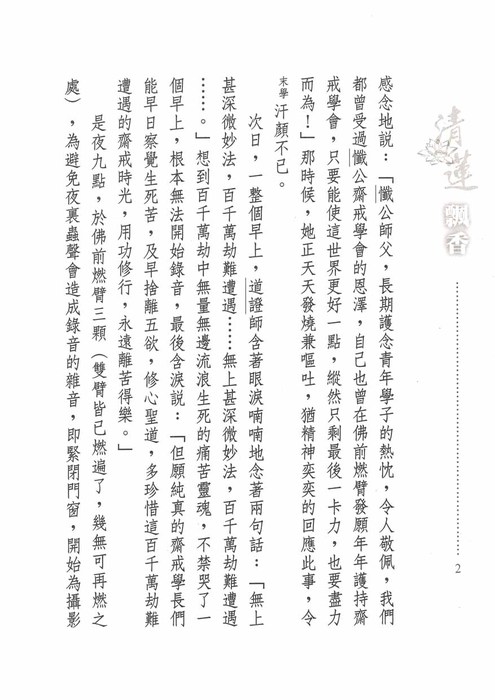 清蓮飄香
2
感念地說：「懺公師父，長期護念青年學子的熱忱，令人敬佩，我們
都曾受過懺公齋戒學會的恩澤，自己也曾在佛前燃臂發願年年護持齋
戒學會，只要能使這世界更好一點，縱然只剩最後一卡力，也要盡力
而為！」那時候，她正天天發燒兼嘔吐，猶精神奕奕的回應此事，令
末學汗顏不已。
次日，一整個早上，道證師含著眼淚喃喃地念著兩句話：「無上
甚深微妙法，百千萬劫難遭遇……無上甚深微妙法，百千萬劫難遭遇
……。」想到百千萬劫中無量無邊流浪生死的痛苦靈魂，不禁哭了一
個早上，根本無法開始錄音，最後含淚說：「但願純真的齋戒學長們
能早日察覺生死苦，及早捨離五欲，修心聖道，多珍惜這百千萬劫難
遭遇的齋戒時光，用功修行，永遠離苦得樂。」
是夜九點，於佛前燃臂三顆（雙臂皆已燃遍了，幾無可再燃之
處），為避免夜裏蟲聲會造成錄音的雜音，即緊閉門窗，開始為攝影